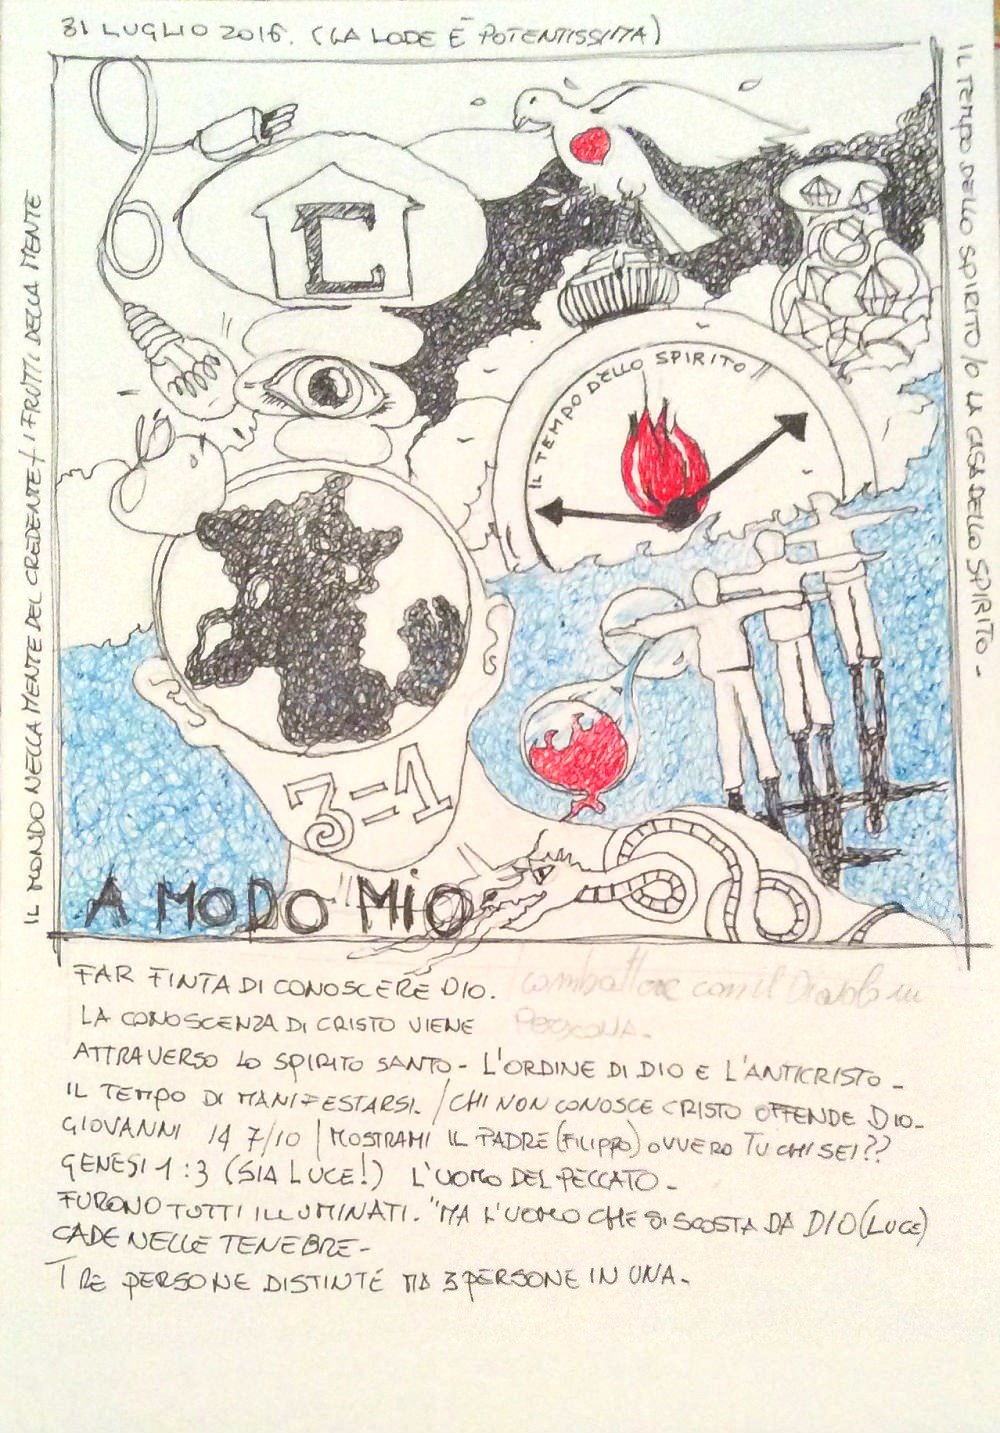 31 LUGLIO 2016. (LA LODE È POTENTISSIMA)
IL TEMPO DELLO SPIRITO / O LA CASA DELLO SPIRITO.-
IL MONDO NELLA MENTE DEL CREDENTE / I FRUTTI DELLA MENTE
C
IL TEMPO DELLO SPIRITO!!
3=1
A MODO MIO
FAR FINTA DI CONOSCERE DIO. Combattere con il Diavolo in
LA CONOSCENZA DI CRISTO VIENE PERSONA.-
ATTRAVERSO LO SPIRITO SANTO - L'ORDINE DI DIO E L'ANTICRISTO -
IL TEMPO DI MANIFESTARSI. / CHI NON CONOSCE CRISTO OFFENDE DIO-
GIOVANNI 14 7/10 | MOSTRAMI IL PADRE (FILIPPO) OVVERO TU CHI SEI??
GENESI 1:3 (SIA LUCE!) L'UOMO DEL PECCATO -
FURONO TUTTI ILLUMINATI. "MA L'UOMO CHE SI SCOSTA DA DIO (LUCE)
CADE NELLE TENEBRE-
TRE PERSONE DISTINTE MA 3 PERSONE IN UNA-